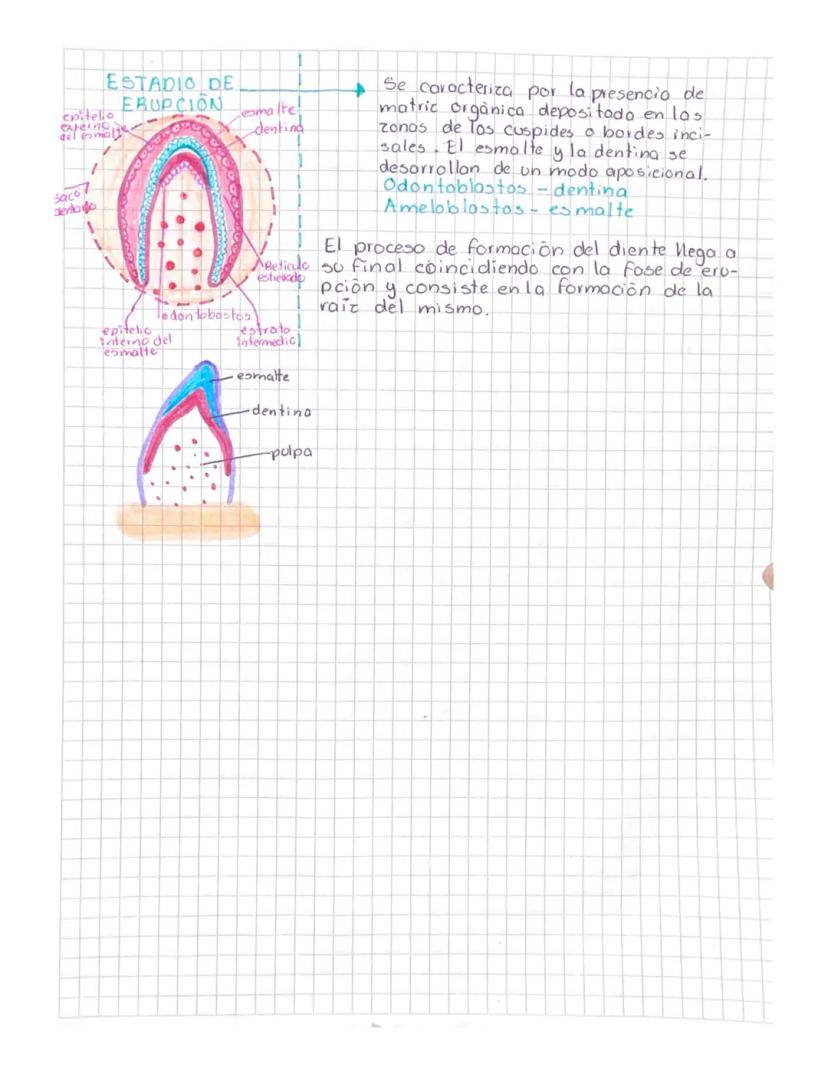 ESTADIO DE
ERUPCIÓN
epitelio
externo
del esmalte
esmalte
dentina
saco
dentario
Retículo
estrellado
odontobastos
epitelio
interno del
esmalte
estrato
intermedio
esmalte
dentina
pulpa
Se caracteriza por la presencia de
matric orgánica depositada en las
zonas de las cuspides o bordes inci-
sales. El esmalte y la dentina se
desarrollan de un modo aposicional.
Odontoblastos - dentina
Ameloblastos - esmalte
El proceso de formación del diente llega a
su final coincidiendo con la fase de eru-
pción y consiste en la formación de la
raíz del mismo.